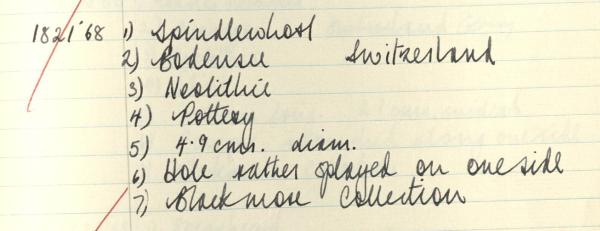 182/'68 1) Spindlewhorl
2) Bodensee Switzerland
3) Neolithic
4) Pottery
5) 4.9 cms. diam.
6) Hole rather splayed on one side
7) Blackmore Collection